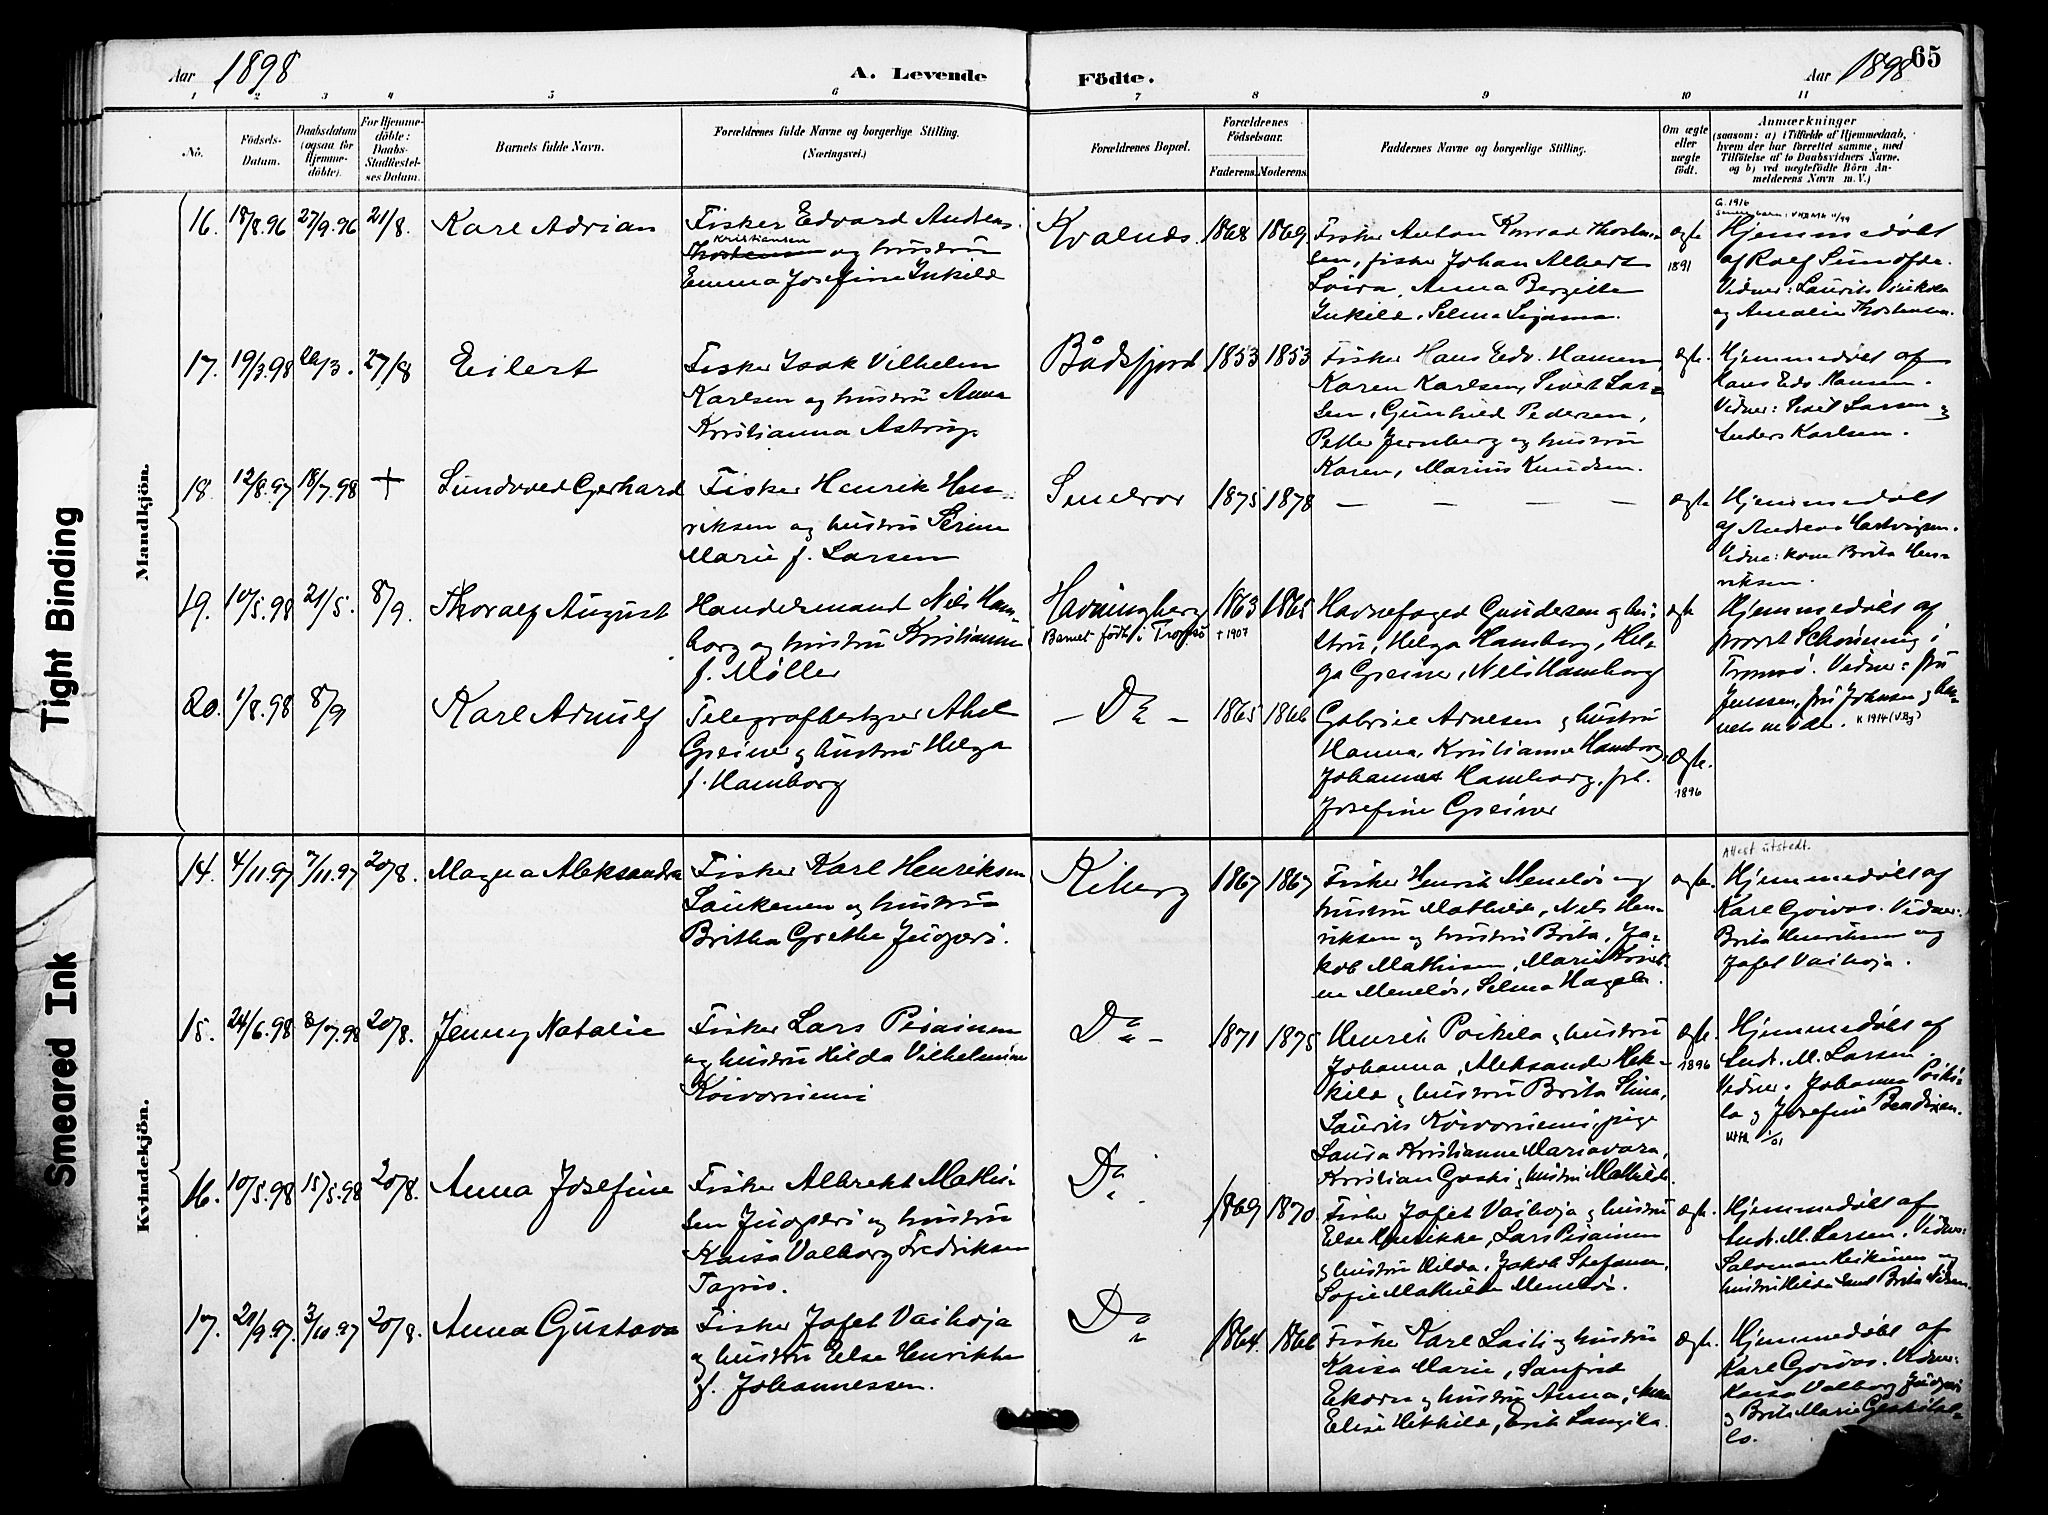 Aar 1898
A. Levende
Födte.
Aar 1898
65
1 2 3 4 5 6 7 8 9 10 11
No.
Födsels-
Datum.
Daabsdatum
(ogsaa for
Hjemme-
döbte).
For Hjemme-
döbte:
Daabs-
Stadfæstel-
ses Datum.
Barnets fulde Navn.
Forældrenes fulde Navne og borgerlige Stilling.
(Næringsvei.)
Forældrenes Bopæl.
Forældrenes
Födselsaar.
Faderens.
Moderens.
Faddernes Navne og borgerlige Stilling.
Om ægte
eller
uægte
födt.
Anmærkninger
(saasom: a) i Tilfælde af Hjemmedaab,
hvem der har forrettet samme, med
Tilföielse af to Daabsvidners Navne,
og b) ved uægtefödte Börn An-
melderens Navn m. V.)
Mandkjön.
16. 18/8.96 27/9.96 21/8. Karl Adrian
Fisker Edvard Andreas
Kristiansen
og hustru
Emma Josefine Inkilä
Kvalnes 1868 1869
Fisker Anton Konrad Thosten-
sen, fisker Johan Albert
Anna Bergitte
Inkilä, Selma
ægte
1891
G. 1916
Hjemmedøbt
af Rolf
Vidner: Laurits
og Amalie Thostensen.
17. 19/3.98 27/8 Eilert
Fisker Isak Vilhelm
Karlsen og hustru Anna
Kristianna Astrup.
Bådsfjord 1853 1853
Fisker Hans Edv. Hansen,
Karen Karlsen, Sivert Lar-
sen, Gunhild Pedersen,
Petter Jernberg og hustru
Karen, Marius Knudsen.
ægte.
Hjemmedøbt af
Hans Edv. Hansen.
Vidner: Sivert Larsen og
Anders Karlsen.
18. 12/8.97 18/7.98 + Sundvald Gerhard
Fisker Henrik Hen-
riksen og hustru Serine
Marie f. Larsen
Smelror 1875 1878
— — — — —
ægte
Hjemmedøbt
af Andreas Hartvigsen.
Vidne: kone Brita Hen-
riksen.
19. 10/5.98 21/5. 8/9. Thoralf August
Handelsmand Nils Ham-
borg og hustru Kristianne
f. Møller
Havningberg
Barnet født i Tromsø
1863
† 1907
1865
Havnefoged Gundersen og hu-
stru, Helga Hamborg, Hel-
ga Greiner, Nels Hamborg
ægte
Hjemmedøbt af
provst Schønning i
Tromsø. Vidner: fru
Jenssen, fru Johnsen og
K 1914 (V.By)
20. 1/8.98 8/9 Karl Arnulf
Telegrafbestyrer Abel
Greiner og hustru Helga
f. Hamborg
— Do —
1865 1866
Gabriel Arnesen og hustru
Hanna, Kristianne Hamborg,
Johannes Hamborg, frk.
Josefine Greiner
Ægte.
1896
Kvindekjön.
14. 4/11.97 7/11.97 20/8. Magna Aleksandra
Fisker Karl Henriksen
Laukanen og hustru
Britha Grethe Juopperi.
Kiberg 1867 1867
Fisker Henrik Meneløs og
hustru Mathilde, Nils Hen-
riksen og hustru Brita, Ja-
kob Mathisen, Marie Krist-
ne Meneløs, Selma
ægte.
Attest utstedt.
Hjemmedøbt af
Karl Goivas. Vidner:
Brita Henriksen og
Jafet Vaihoja.
15. 24/6.98 3/7.98 20/8. Jenny Natalie
Fisker Lars Pisainen
og hustru Hilda Vilhelmine
Koivoniemi
Do -
1871 1875
Henrik Poikela og hustru
Johanna, Aleksander Hek-
kilä og hustru Brita Stina,
Laurits Koivoniemi, pige
Laura Kristianne Mariavara,
Kristian og hustru Mathilde.
Ægte
1896
Hjemmedøbt af
And. M. Larsen.
Vidner: Johanna Poike-
la og Josefine Bendixen.
16. 10/5.98 15/5.98 20/8. Anna Josefine
Fisker Albrekt Mathi-
sen Juopperi og hustru
Kaisa Valborg Fredriksen
Tapio.
Do
1869 1870
Fisker Jafet Vaihoja og hustru
Else Henrikke, Lars Pisainen
og hustru Hilda, Jakob Stefansen,
Sofie Mathilde Meneløs.
Ægte.
Hjemmedøbt af
And. M. Larsen. Vidner:
Salomon Heikinen og
hustru Hilda
17. 20/9.97. 3/10.97 20/8. Anna Gustava
Fisker Jafet Vaihoja
og hustru Else Henrikke
f. Johannessen.
Do
1864. 1866
Fisker Karl Laiti og hustru
Kaisa Marie, Sanfrid
Ekorn og hustru Anna, Anna
Elise Hekkilä, Erik
Ægte.
Hjemmedøbt af
Karl Goivas. Vidner:
Kaisa Valborg Juopperi
og Brita Marie
Tight Binding
Smeared Ink